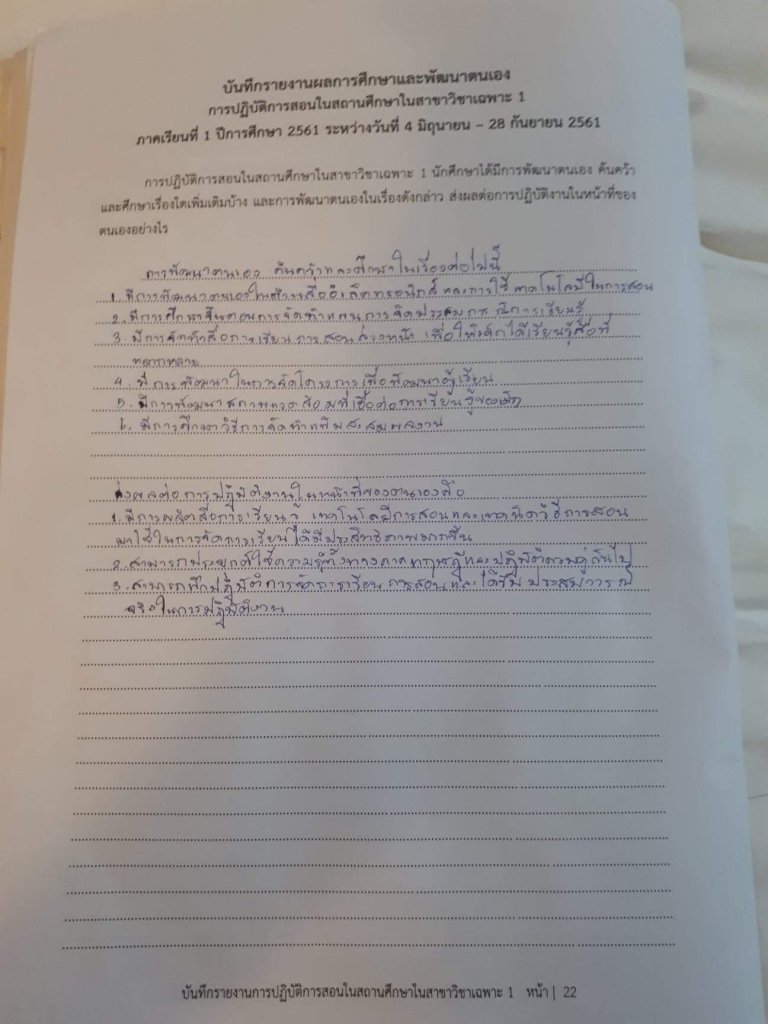 บันทึกรายงานผลการศึกษาและพัฒนาตนเอง
การปฏิบัติการสอนในสถานศึกษาในสาขาวิชาเฉพาะ 1
ภาคเรียนที่ 1 ปีการศึกษา 2561 ระหว่างวันที่ 4 มิถุนายน – 28 กันยายน 2561
การปฏิบัติการสอนในสถานศึกษาในสาขาวิชาเฉพาะ 1 นักศึกษาได้มีการพัฒนาตนเอง ค้นคว้า
และศึกษาเรื่องใดเพิ่มเติมบ้าง และการพัฒนาตนเองในเรื่องดังกล่าว ส่งผลต่อการปฏิบัติงานในหน้าที่ของ
ตนเองอย่างไร
การพัฒนาตนเอง ค้นคว้าและศึกษาในเรื่องต่อไปนี้
1. มีการพัฒนาตนเองในด้านสื่ออิเล็กทรอนิกส์ และการใช้เทคโนโลยีในการสอน
2. มีการศึกษาขั้นตอนการจัดทำแผนการจัดประสบการณ์การเรียนรู้
3. มีการจัดทำสื่อการเรียนการสอนล่วงหน้า เพื่อให้เด็กได้เรียนรู้สื่อที่
หลากหลาย
4. มีการพัฒนาในการจัดโครงการเพื่อพัฒนาผู้เรียน
5. มีการพัฒนาสภาพแวดล้อมที่เอื้อต่อการเรียนรู้ของเด็ก
6. มีการศึกษาวิธีการจัดทำแฟ้มสะสมผลงาน
ส่งผลต่อการปฏิบัติงานในหน้าที่ของตนเองคือ
1. มีการผลิตสื่อการเรียนรู้ เทคโนโลยีการสอนและเทคนิควิธีการสอน
มาใช้ในการจัดการเรียนได้มีประสิทธิภาพมากขึ้น
2. สามารถประยุกต์ใช้ความรู้ทั้งทางภาคทฤษฎีและปฏิบัติควบคู่กันไป
3. สามารถฝึกปฏิบัติการจัดการเรียนการสอนและได้รับประสบการณ์
จริงในการปฏิบัติงาน
บันทึกรายงานการปฏิบัติการสอนในสถานศึกษาในสาขาวิชาเฉพาะ 1 หน้า | 22